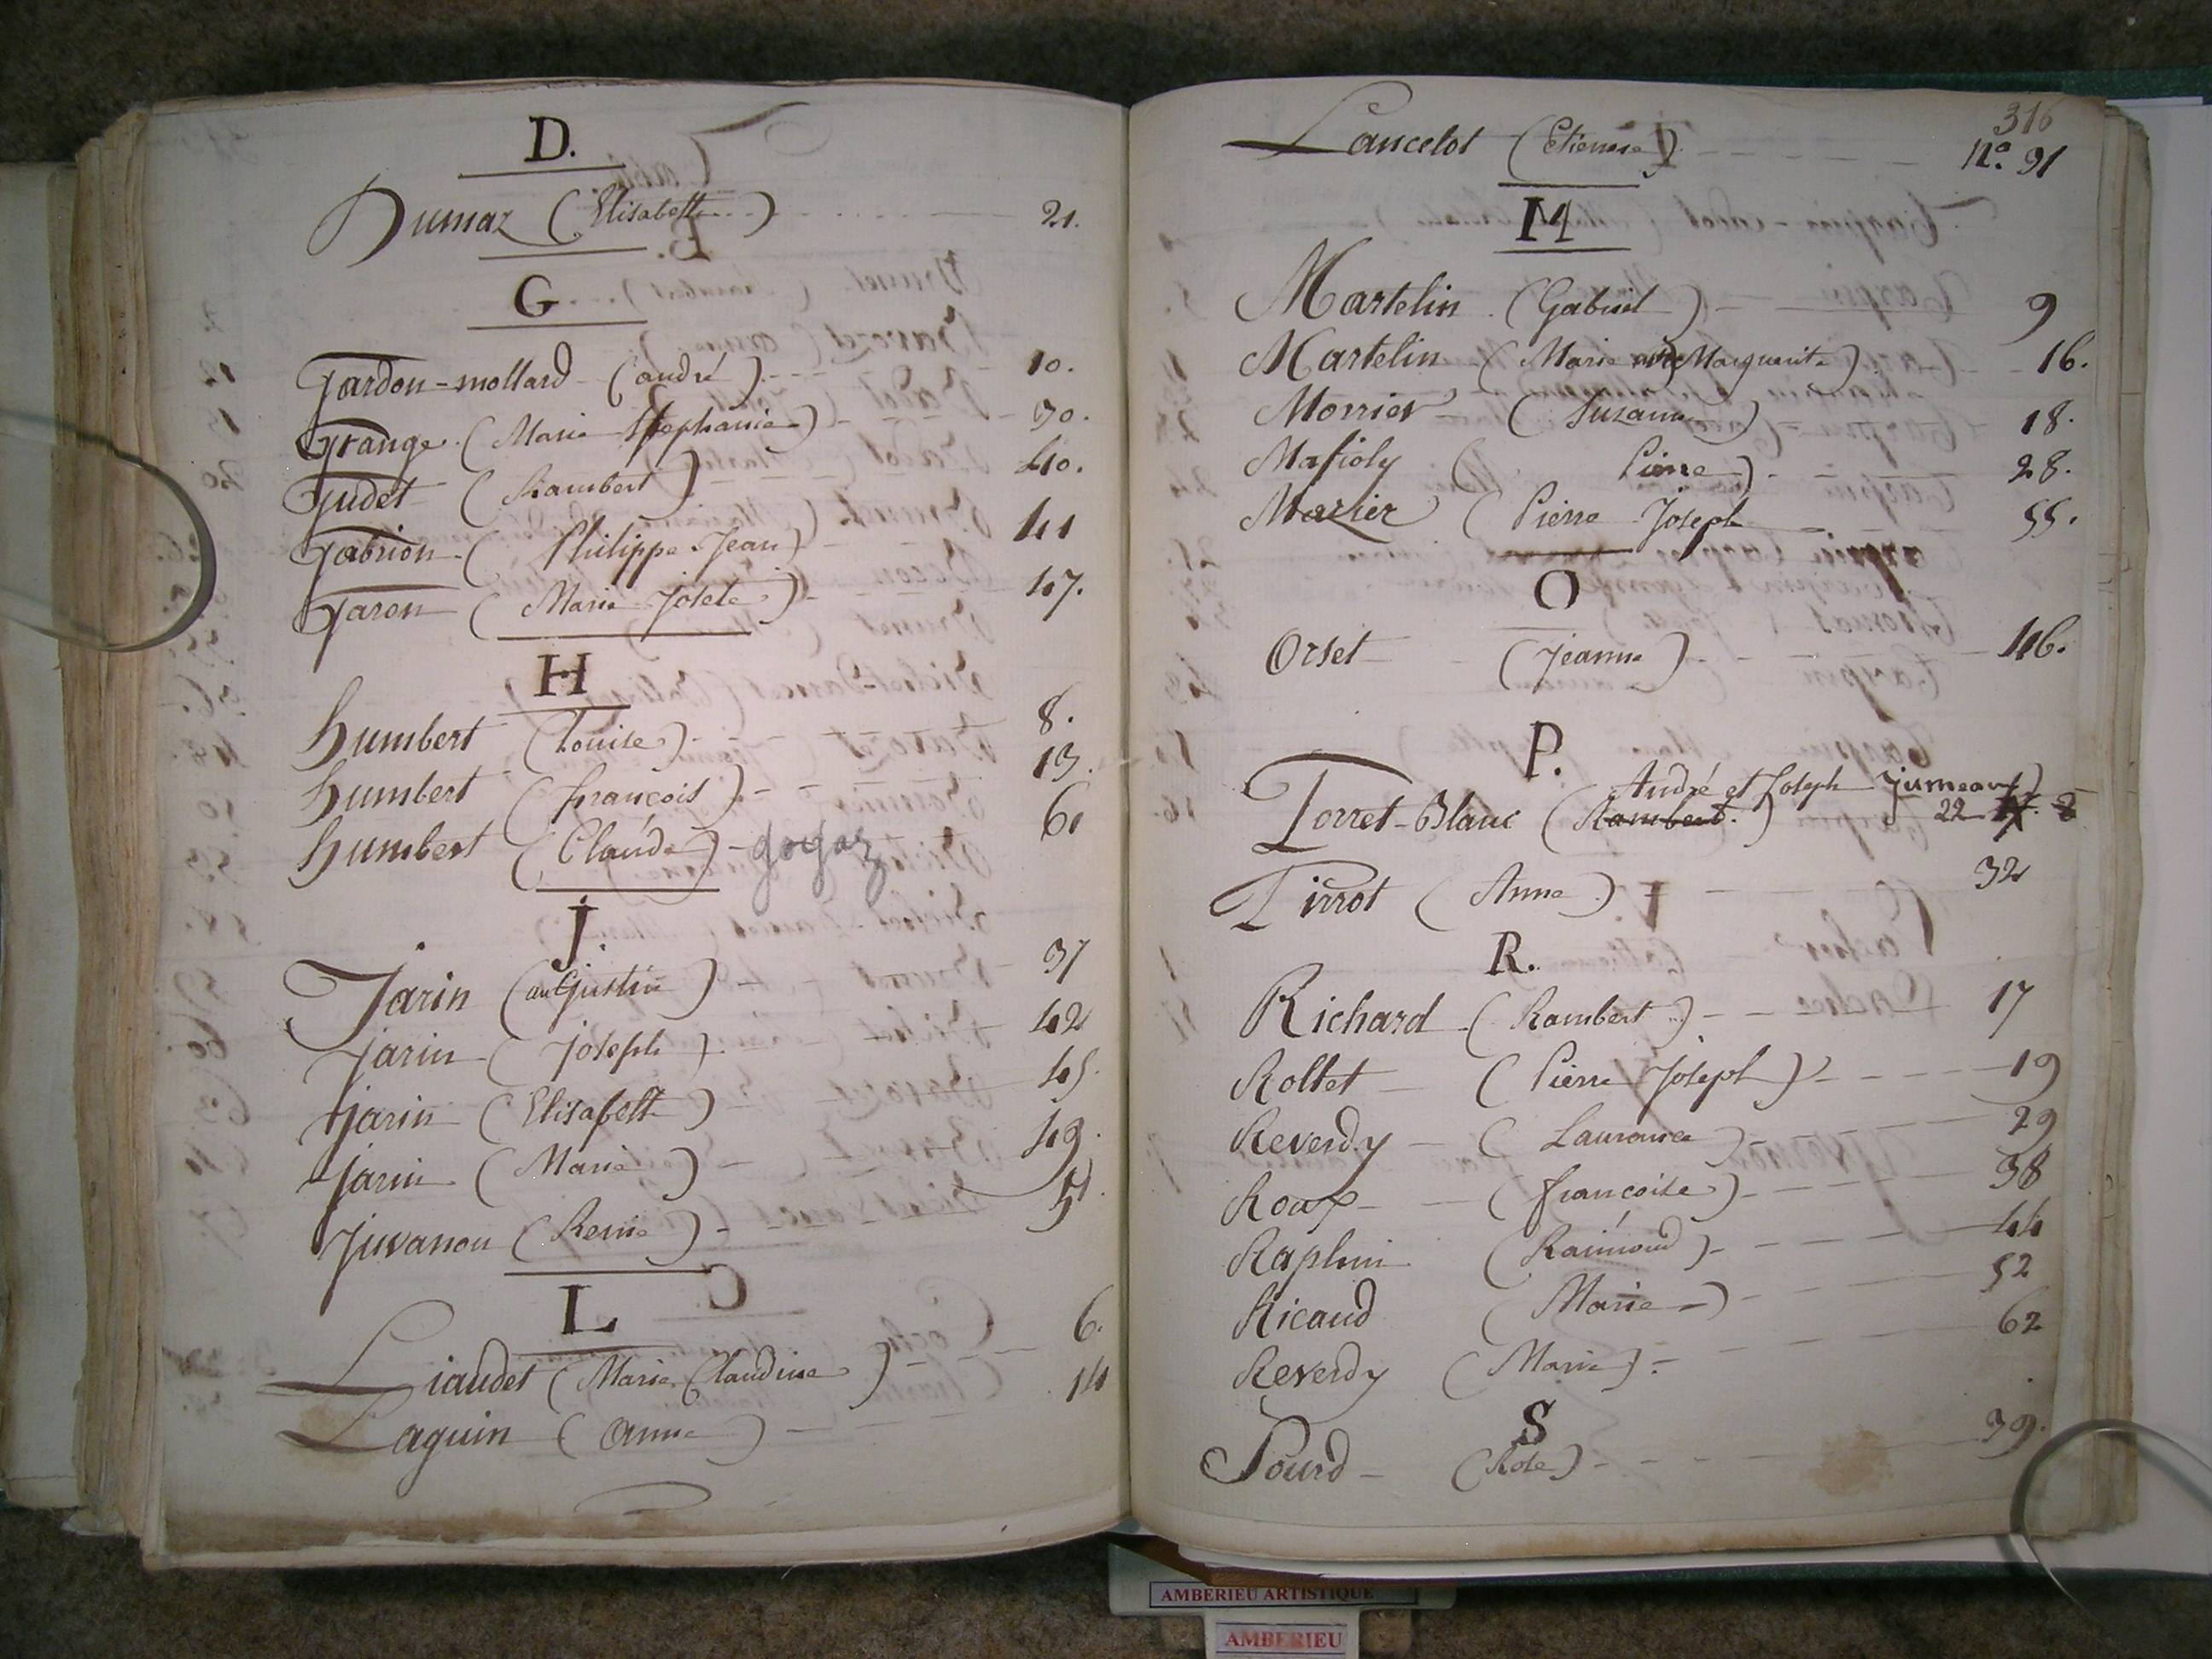 D.
Dumaz (Elisabeth...) 21.
G
Gardon-mollard (andré) 10.
Grange (Marie Stephanie) 30.
Gudet (Rambert) 40.
Gabrion (Philippe Jean) 41
Garon (Marie Josete) 47.
H
humbert (Louise) 8.
humbert (françois) 13.
humbert (Claude) 61
J.
Jarin (auGustin) 37
jarin (joseph) 42
jarin (Elisabeth) 45.
jarin (Marie) 49.
Juvanon (Reine) 51.
L
Liaudet (Marie Claudine) 6.
Laguin (anne) 14
316
Lancelot (Etienne) n.o 31
M
Martelin (Gabriel) 9
Martelin (Marie Marguerite) 16.
Monnier (Suzanne) 18.
Mafioly (Pierre) 28.
Mazier (Pierre Joseph 55.
O
Orset (Jeanne) 46.
P.
André et Joseph jumeaux)
Porret-Blanc (Rambert.) 22
Pirrot (Anne) 32
R.
Richard (Rambert) 17
Roltet (Pierre Joseph) 19
Reverdy (Laurance) 29
Roux (françoise) 38
(Raimond) 44
Ricaud (Marie) 52
Reverdy (Marie) 62
S
Sourd (Rose) 39.
AMBERIEU ARTISTIQUE
AMBERIEU